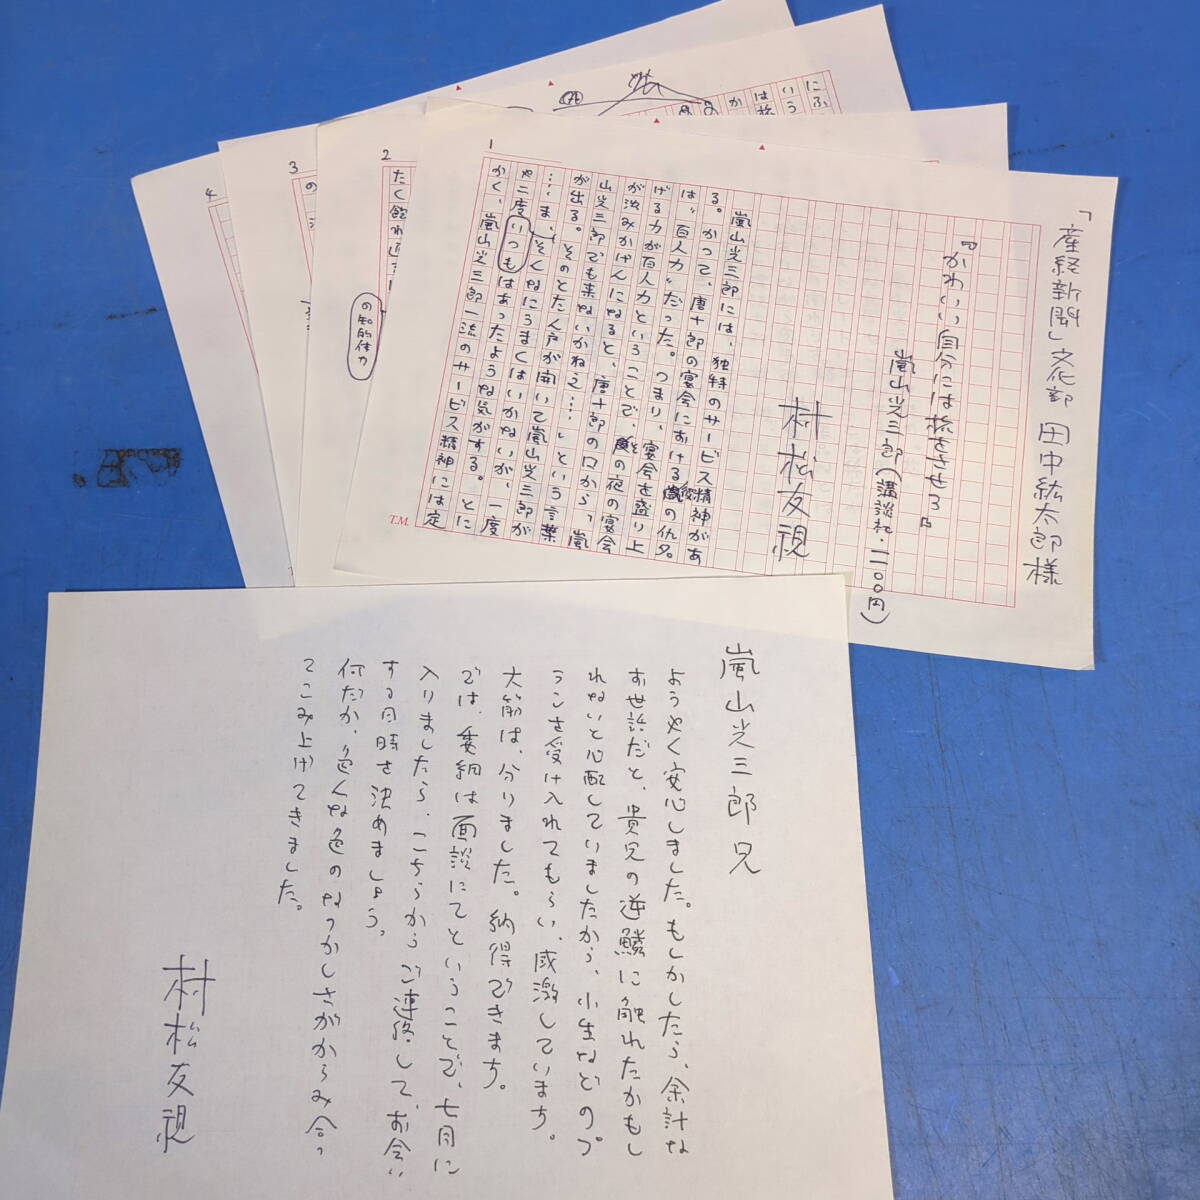 「産経新聞」文化部 田中紘太郎様
『かわいい自分には旅をさせろ』
嵐山光三郎(講談社・一二〇〇円)
村松友視
1
嵐山光三郎には、独特のサービス精神があ
る。かつて、唐十郎の宴会における彼の仇名
は〝百人力〟だった。つまり、宴会を盛り上
げる力が百人力ということで、その夜の宴会
が沈みかげんになると、唐十郎の口から、嵐
山光三郎でも来ないかねえ……という言葉
が出る。そのとたん戸が開いて嵐山光三郎が
……ま、そんなにうまくはいかないが、一度
や二度いつもはあったような気がする。とに
かく、嵐山光三郎一流のサービス精神には定
T.M.
2
の知的体力
3
4
嵐山光三郎兄
ようやく安心しました。もしかしたら、余計な
お世話だと、貴兄の逆鱗に触れたかもし
れないと心配していましたから、小生などのプ
ランを受け入れてもらい、感激しています。
大筋は、分りました。納得できます。
では、委細は面談にてということで、七月に
入りましたら、こちらからご連絡して、お会い
する日時を決めましょう。
何だか、色んな色のなつかしさがからみ合っ
てこみ上げてきました。
村松友視